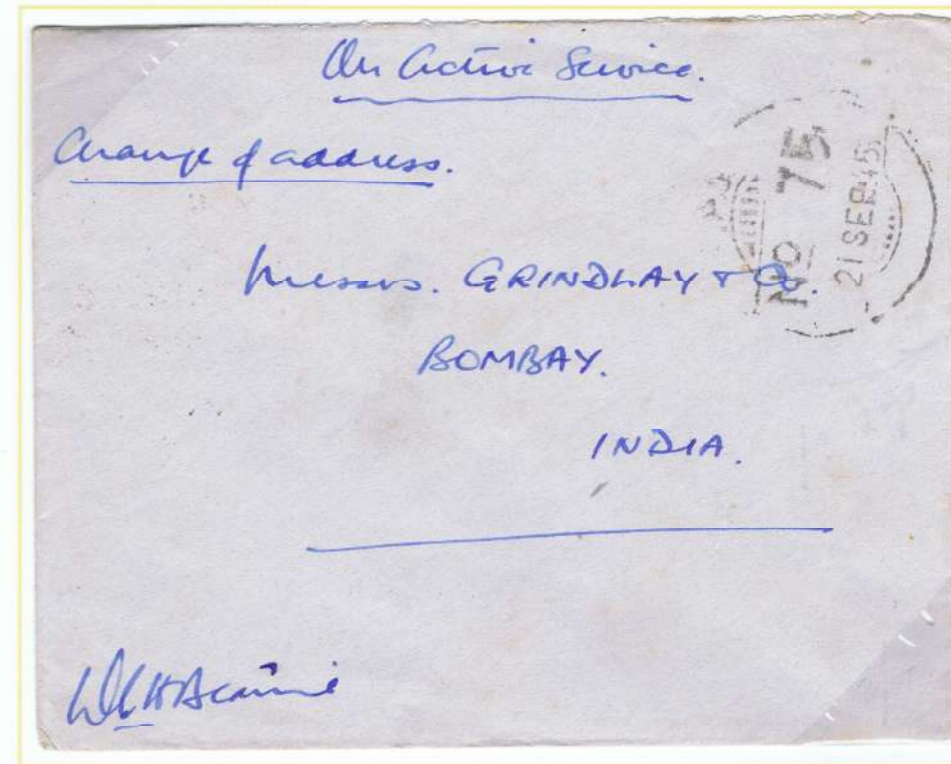 On Active Service.
Change of address.
NO 75
21 SEP 45
Messrs. GRINDLAY & Co.
BOMBAY.
INDIA.